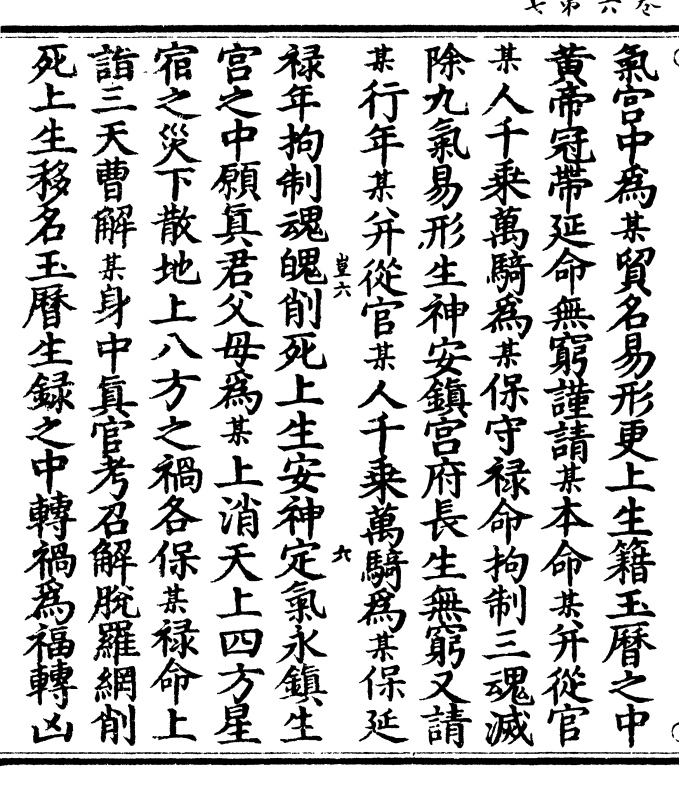 氣宮中爲某貿名易形更上生籍玉曆之中
黄帝冠帶延命無窮謹請某本命某并從官
某人千乘萬騎爲某保守禄命拘制三魂滅
除九氣易形生神安鎮宮府長生無窮又請
某行年某并從官某人千乘萬騎爲某保延
豈六
六
禄年拘制魂魄削死上生安神定氣永鎮生
宮之中願眞君父母爲某上消天上四方星
宿之災下散地上八方之禍各保某禄命上
詣三天曹解某身中眞官考召解脱羅網削
死上生移名玉曆生録之中轉禍爲福轉凶